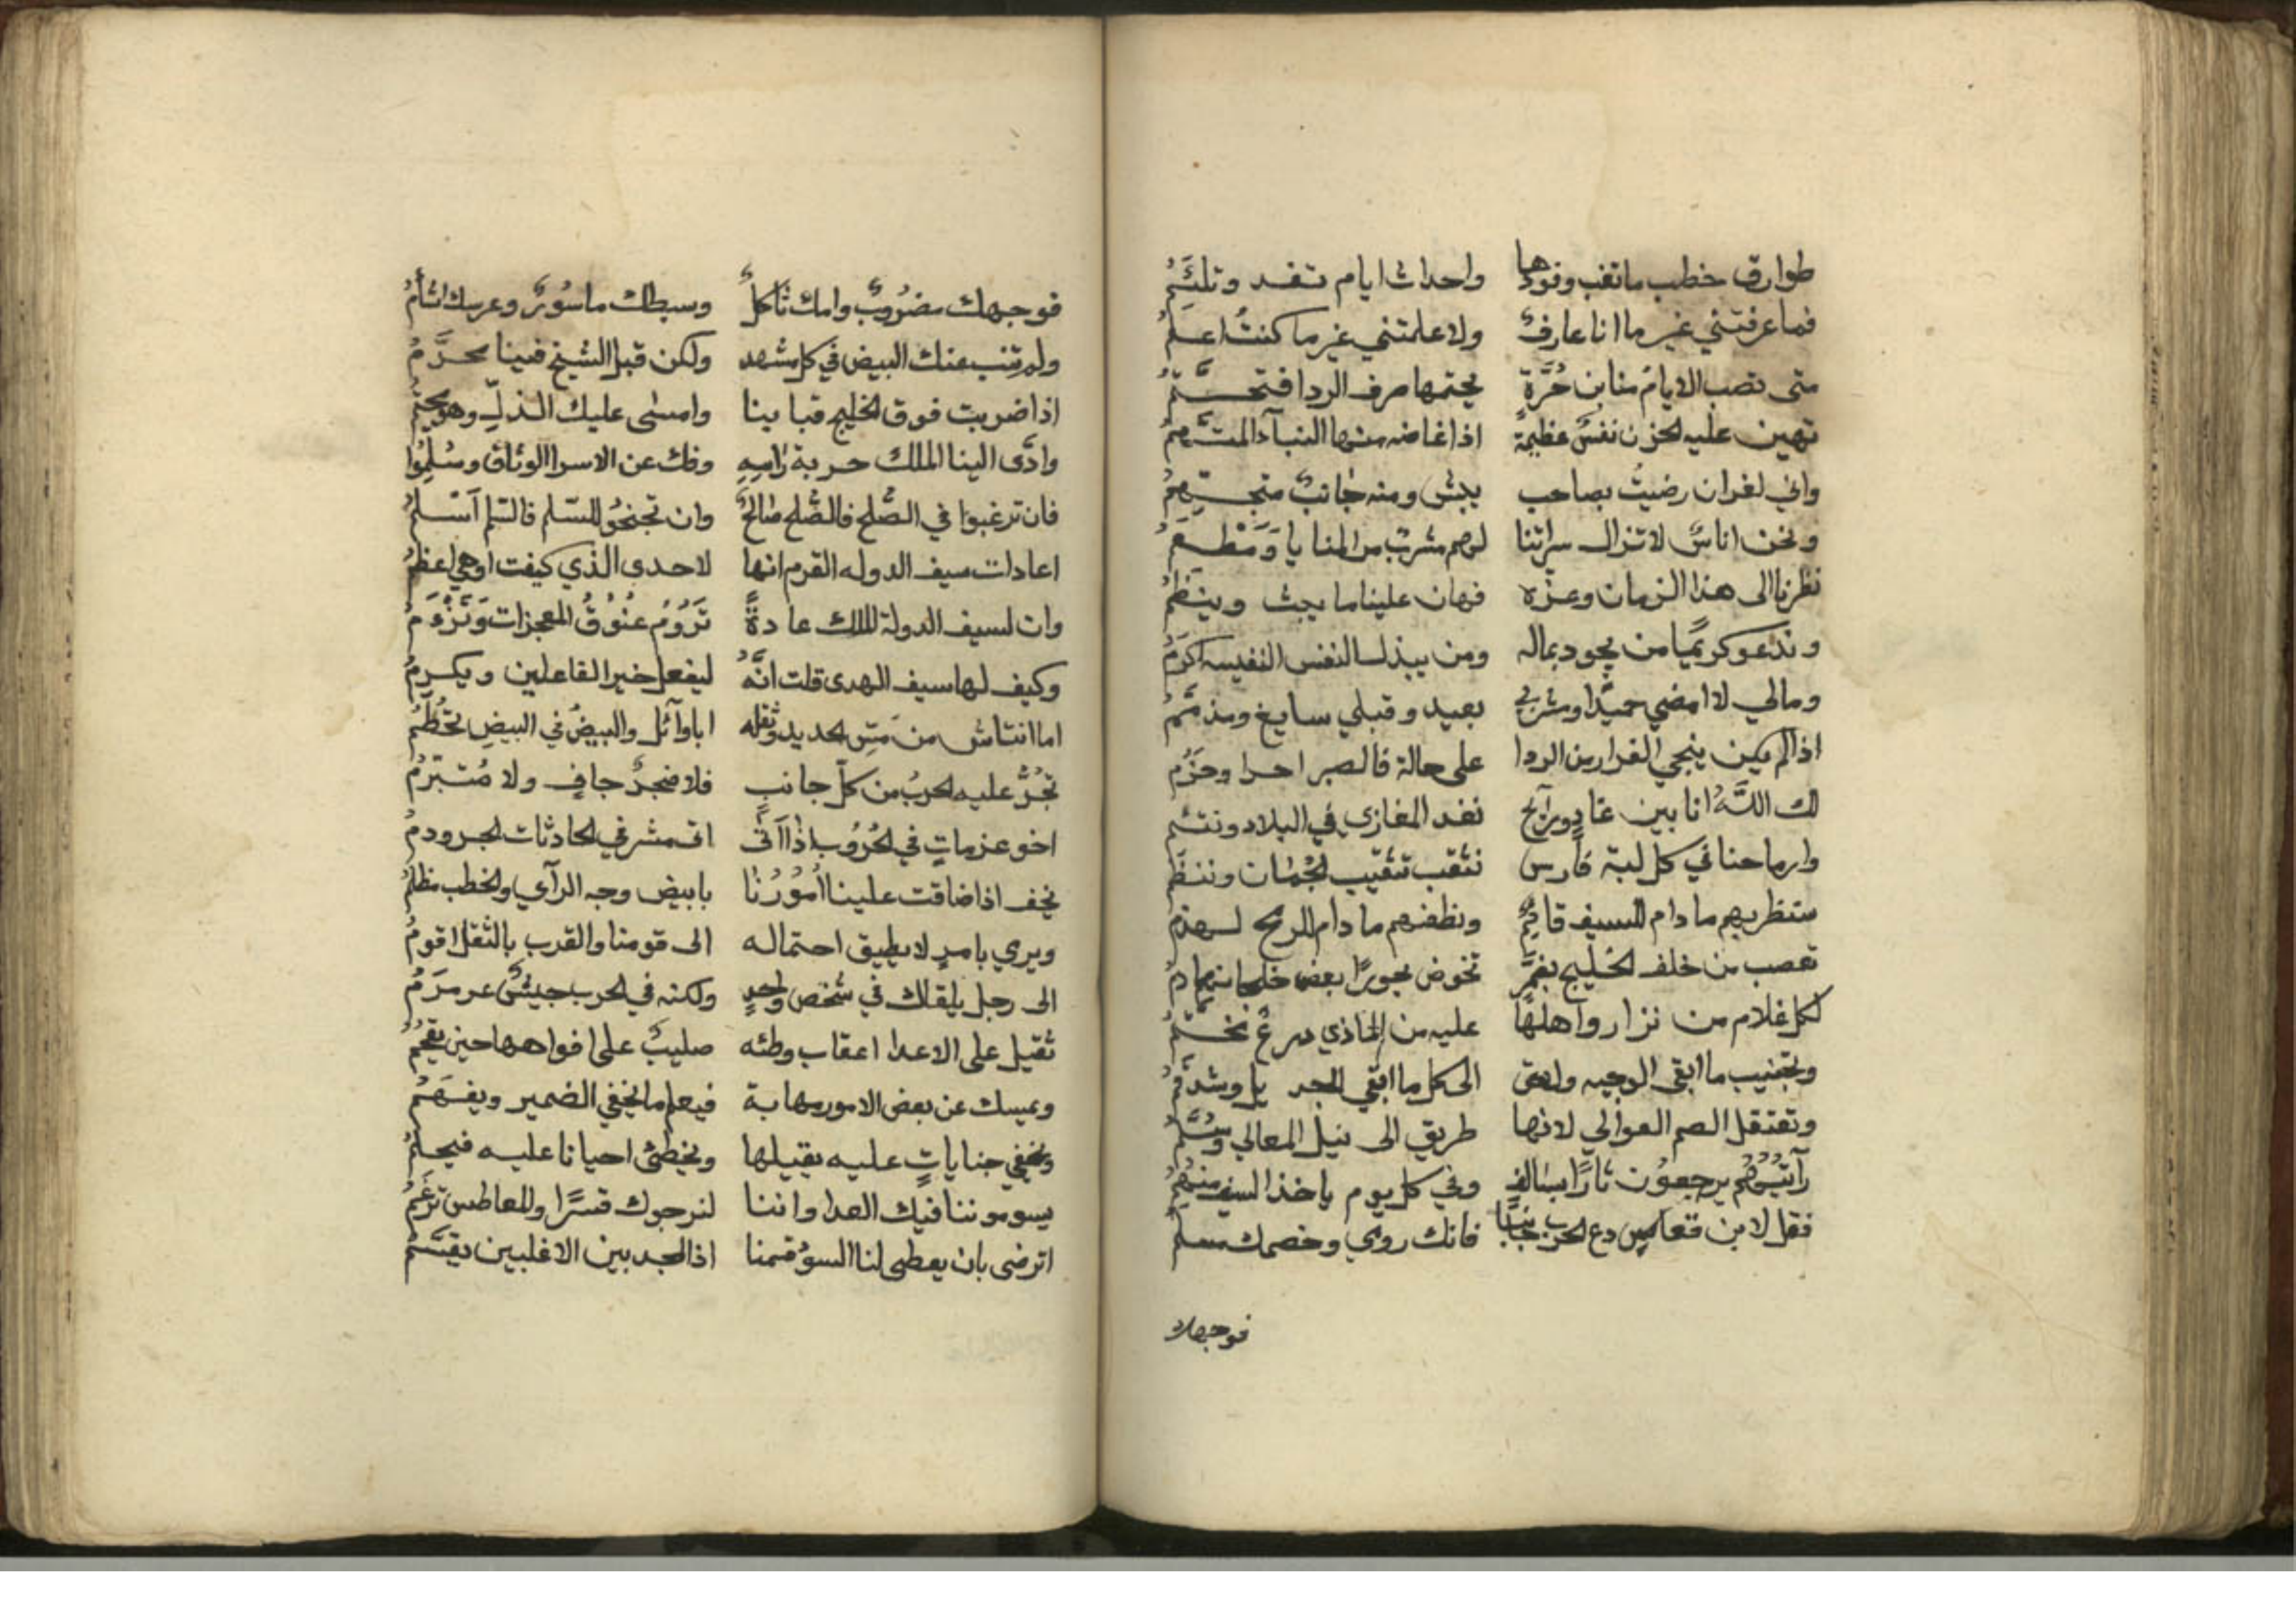 طوارق خطب ما تغب وفودها واحداث ايام تغد وتلتئم
فما عرفتني غير ما انا عارف ولا علمتني غير ما كنتُ اعلم
متى تصب الايامُ منا بن حُرَّةٍ يجتمها صرف الردا فتجسَّم
تهين عليه الحزن نفسٌ عظيمةٌ اذا غاضه منها النبآ المتهم
واني لغر ان رضيتُ بصاحب يبش ومنه جانبٌ متجهم
ونحن اناسٌ لا تزال سراتنا لهم مشربٌ من المنايا وَمَطْعَم
نظرنا الى هذا الزمان وعزه فهان علينا ما يبث وينظم
وندعو كريمًا من يجود بماله ومن يبذل النفس النفيسه اكرَمُ
ومالي لا امضي حميدًا ومشربي بعيد وقبلي سايغ ومذمَّم
اذا لم يكن ينجي الفرار من الردا على حالة فالصبر احرا وحَزْم
لك اللَّهُ انا بين غادٍ ورآيح نغد المغازي في البلاد ونتئم
وارماحنا في كل لبة فارس نثقب تثقيب الجُمان وننظَم
ستنظر بهم ما دام للسيف قايمٌ ونطغهم ما دام للرمح لهذم
تعصب من خلف الخليج بغمَّر تخوض بحورًا بعض خلجانها دم
لكل غلام من نزار واهلها عليه من الماذي درعٌ مختَّم
وتجنيب ما ابقى الوجيه ولاحق الى كل ما ابقى الجديل وشدقم
وتعتقل الصم العوالي لانها طريق الى نيل المعالي وسُلَّم
رآيتُمُوهُم يرجعوُن ثارًا بسالفٍ وفي كل يوم ياخذ السيف منهُمُ
فقل لابن فقاس دع الحرب جانبًا فانك رومي وخصمك مسلم
فوجهك
فوجهك مضرُوبٌ وامك ثاكلٌ وسبطك ماسُورٌ وعرسك اتأمُ
ولم تنب عنك البيض في كل مشهد ولكن قبل الشيخ فينا محرَّمُ
اذا ضربت فوق الخليج قبابنا وامسى عليك الذلِّ وهو مخيمُ
وادَّى الينا الملك حربة رامهِ وفك عن الاسرا الوثاق وسُلِمُوا
فان ترغبوا في الصُّلح فالصُّلح صَالحٌ وان تجنحُوا للسّلم فالسّلم اَسْلمُ
اعادات سيف الدوله القرم انها لاحدى الذي كيفت او هي اعظمُ
وان لسيف الدولة الملك عادةً تَرُومُ عنُوقُ المعجزات وَتزْءَمُ
وكيف لها سيف الهدى قلت انَّهُ ليفعل خير الفاعلين ويكرمُ
اما انتاش من مَسِّ الحديد وثقله ابا وآئل والبيضُ في البيضِ تحُطَّمُ
تجُرُّ عليه الحربُ من كل جانبٍ فلا ضجرٌ جافٍ ولا مُتبرَّمُ
اخو عزماتٍ في الحُرُوب اذا اَتى اتى مشرفي الحادثات الجرودمُ
نخف اذا ضاقت علينا اُمُوُرُنَا بابيض وجه الرآي والخطب مظلمُ
ويرى بامرٍ لا يطيق احتماله الى قومنا والقرب بالثقل اقومُ
الى رجل يلقاك في شخص واحدٍ ولكنه في الحرب جيشٌ عرمرَمُ
ثقيل على الاعدا اعقاب وطئه صليبٌ على افواهها حين يعجُمُ
ويمسك عن بعض الامور مهابة فيعلم ما يخفي الضمير ويفهَمُ
ونجفي جناياتٍ عليه يقيلها ونخطئ احيانا عليه فيحلمُ
يسوموننا فيك الفدا واننا لنرجوك قسرًا والمعاطس ترغَمُ
اترضى بان يعطى لنا السوُ قسمنا اذا المجد بين الاغلبين يقسَّمُ